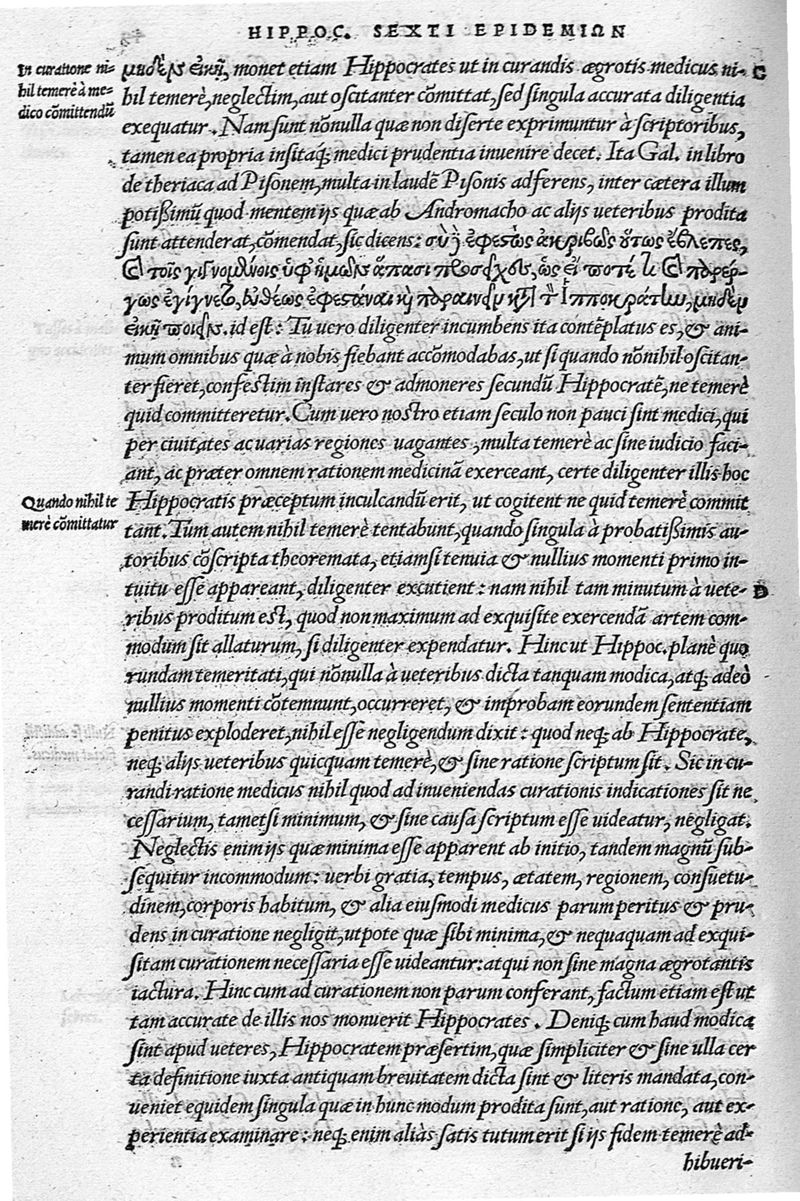 HIPPOC. SEXTI EPIDEMIΩN
In curatione ni-
hil temerè à me-
dico cõmittendũ
μηδὲν εἰκῆ, monet etiam Hippocrates ut in curandis ægrotis medicus ni- C
hil temerè, neglectim, aut oscitanter cõmittat, sed singula accurata diligentia
exequatur. Nam sunt nõnulla quæ non diserte exprimuntur à scriptoribus,
tamen ea propria insitaq́; medici prudentia invenire decet. Ita Gal. in libro
de theriaca ad Pisonem, multa in laudẽ Pisonis adferens, inter cætera illum
potißimũ quod mentem ijs quæ ab Andromacho ac alijs ueteribus prodita
sunt attenderat, cõmendat, sic dicens: σὺ ἐφεστὼς ἀκριβῶς οὕτως ἔβλεπες,
τοῖς γιγνομένοις ὑφ' ἡμῶν ἅπασι προσεῖχες, ὡς εἴ ποτέ τι παρέρ-
γως ἐγίγνετο, εὐθέως ἐφεστάναι καὶ παραινεῖν κατὰ τὸν Ἱπποκράτην, μηδὲν
εἰκῆ ποιεῖν. id est: Tu uero diligenter incumbens ita contẽplatus es, & ani-
mum omnibus quæ à nobis fiebant accõmodabas, ut si quando nõnihil oscitan-
ter fieret, confestim instares & admoneres secundũ Hippocratẽ, ne temerè
quid committeretur. Cum uero nostro etiam seculo non pauci sint medici, qui
per ciuitates ac uarias regiones uagantes, multa temerè ac sine iudicio faci-
ant, ac præter omnem rationem medicinã exerceant, certe diligenter illis hoc
Quando nihil te
merè cõmittatur
Hippocratis præceptum inculcandũ erit, ut cogitent ne quid temerè commit
tant. Tum autem nihil temerè tentabunt, quando singula à probatißimis au-
toribus cõscripta theoremata, etiamsi tenuia & nullius momenti primo in-
tuitu esse appareant, diligenter excutient: nam nihil tam minutum à uete- D
ribus proditum est, quod non maximum ad exquisite exercendã artem com-
modum sit allaturum, si diligenter expendatur. Hinc ut Hippoc. planè quo
rundam temeritati, qui nõnulla à ueteribus dicta tanquam modica, atq; adeò
nullius momenti cõtemnunt, occurreret, & improbam eorundem sententiam
penitus exploderet, nihil esse negligendum dixit: quod neq; ab Hippocrate,
neq; alijs ueteribus quicquam temerè, & sine ratione scriptum sit. Sic in cu-
randi ratione medicus nihil quod ad inueniendas curationis indicationes sit ne
cessarium, tametsi minimum, & sine causa scriptum esse uideatur, negligat.
Neglectis enim ijs quæ minima esse apparent ab initio, tandem magnũ sub-
sequitur incommodum: uerbi gratia, tempus, ætatem, regionem, consuetu-
dinem, corporis habitum, & alia eiusmodi medicus parum peritus & pru-
dens in curatione negligit, utpote quæ sibi minima, & nequaquam ad exqui-
sitam curationem necessaria esse uideantur: atqui non sine magna ægrotantis
iactura. Hinc cum ad curationem non parum conferant, factum etiam est ut
tam accurate de illis nos monuerit Hippocrates. Deniq; cum haud modica
sint apud ueteres, Hippocratem præsertim, quæ simpliciter & sine ulla cer
ta definitione iuxta antiquam breuitatem dicta sint & literis mandata, con-
ueniet equidem singula quæ in hunc modum prodita sunt, aut ratione, aut ex-
perientia examinare: neq; enim aliàs satis tutum erit si ijs fidem temerè ad-
hibueri-